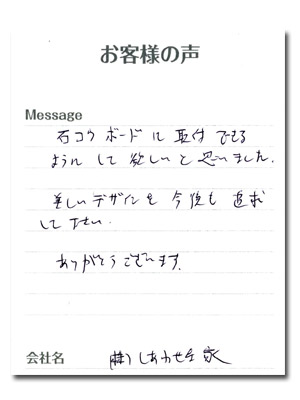 お客様の声
Message
石コウボードに取付できる
ようにして欲しいと思いました。
美しいデザインを今後も追求
して下さい.
ありがとうございます.
会社名 (株)しあわせな家